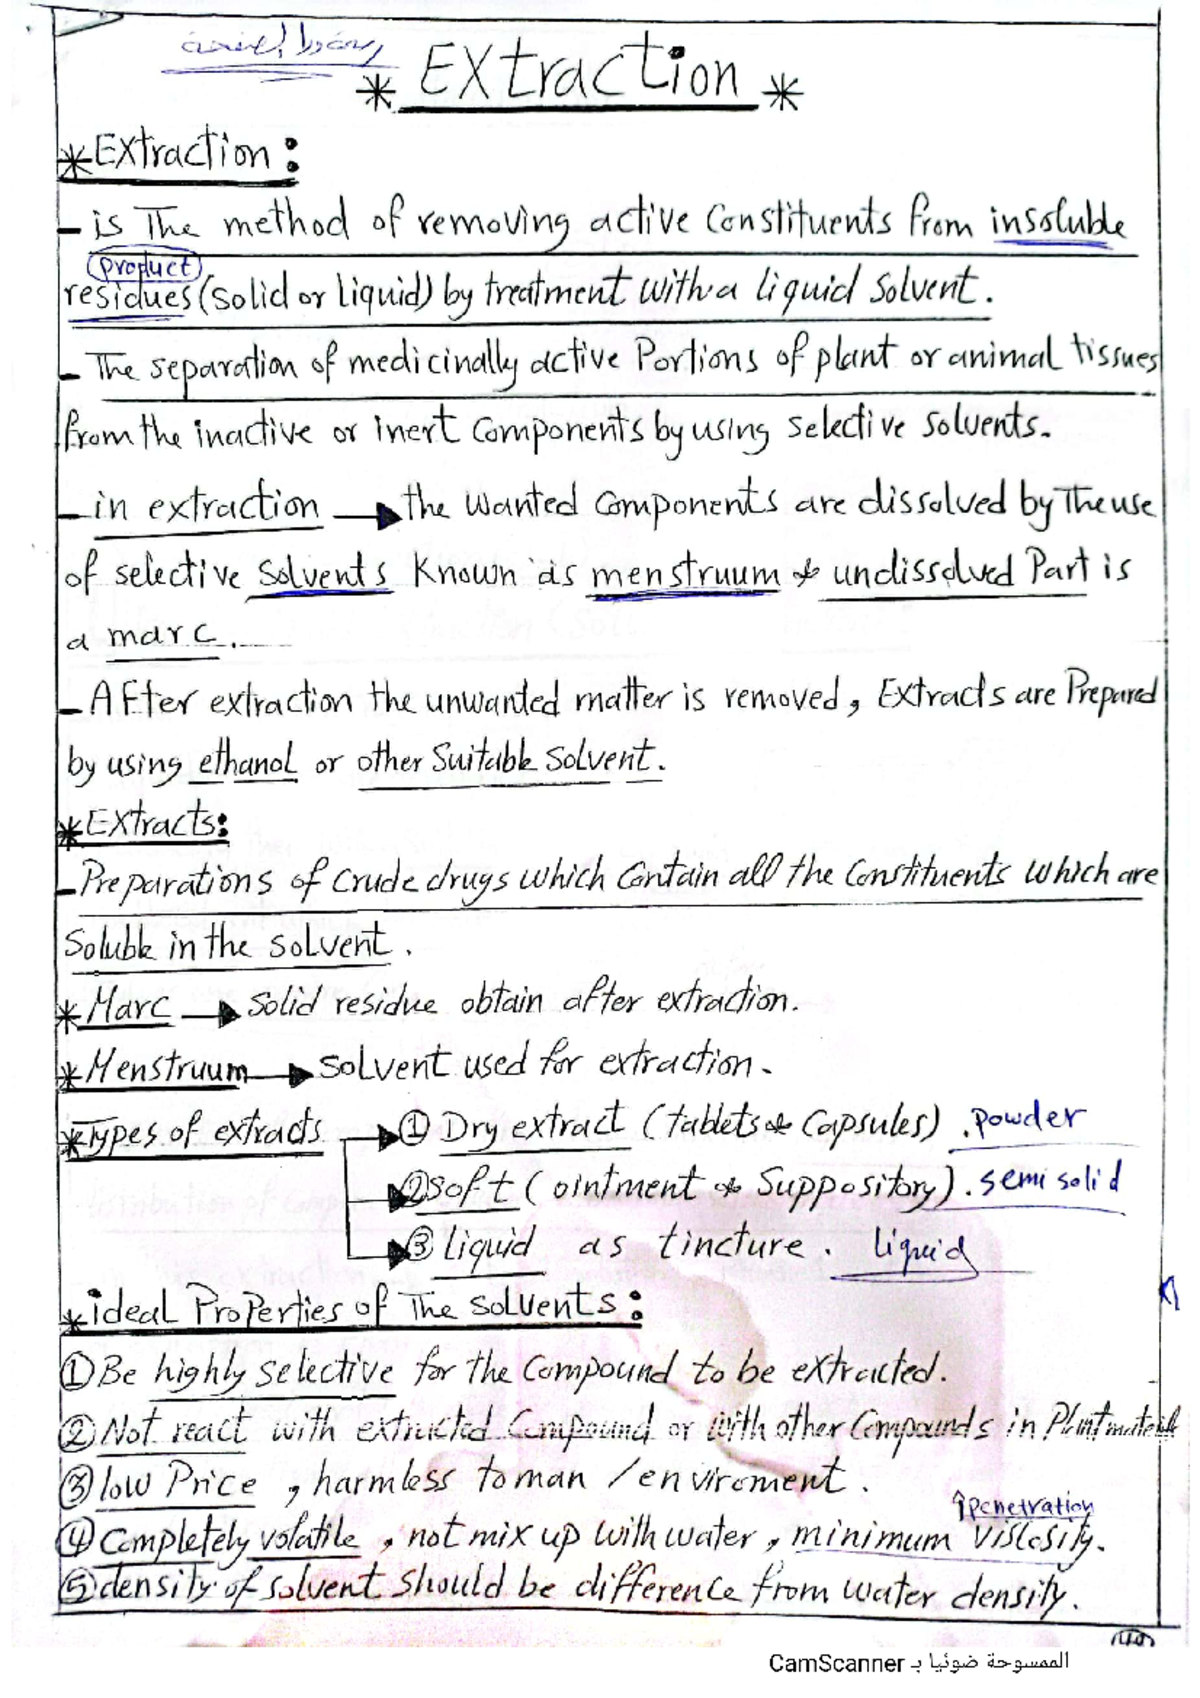 * Extraction *
* Extraction :
- is The method of removing active Constituents from insoluble
product
residues (solid or liquid) by treatment with a liquid solvent.
- The separation of medicinally active Portions of plant or animal tissues
from the inactive or inert Components by using selective solvents.
- in extraction → the wanted Components are dissolved by The use
of selective solvents Known as menstruum & undissolved Part is
a marc.
- After extraction the unwanted matter is removed, Extracts are Prepared
by using ethanol or other Suitable solvent.
* Extracts:
- Preparations of crude drugs which Contain all the Constituents which are
Soluble in the solvent.
* Marc → solid residue obtain after extraction.
* Menstruum → solvent used for extraction.
* Types of extracts → ① Dry extract (tablets & Capsules). powder
② Soft (ointment & Suppository). semi solid
③ liquid as tincture. liquid
* ideal Properties of The solvents :
① Be highly selective for the Compound to be extracted.
② Not react with extracted Compound or with other Compounds in Plant material
③ low Price, harmless to man / enviroment.
↑ penetration
④ Completely volatile, not mix up with water, minimum viscosity.
⑤ density of solvent should be difference from water density.
40
الممسوحة ضوئيا بـ CamScanner